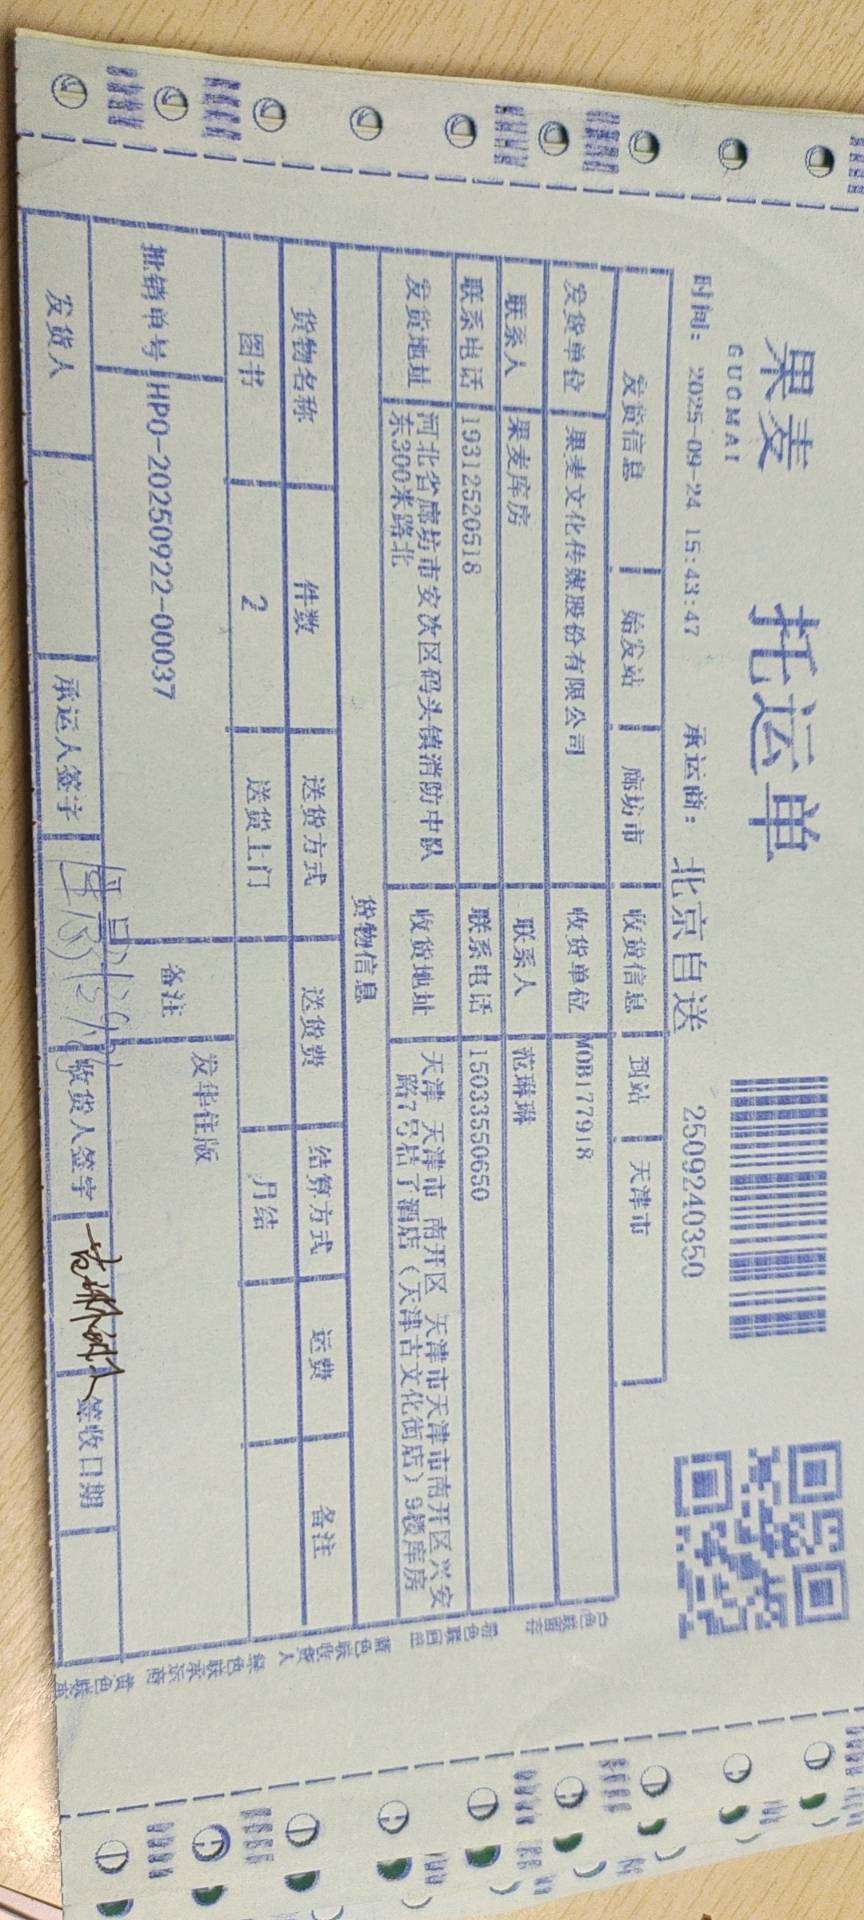 果麦
GUOMAI
托运单
时间: 2025-09-24 15:43:47 承运商: 北京自送 2509240350
发货信息 始发站 廊坊市 收货信息 到站 天津市
发货单位 果麦文化传媒股份有限公司 收货单位 MOB177918
联系人 果麦库房 联系人 范琳琳
联系电话 19312520518 联系电话 15033550650
发货地址 河北省廊坊市安次区码头镇消防中队
东300米路北
收货地址 天津 天津市 南开区 天津市天津市南开区兴安
路7号桔子酒店（天津古文化街店）9楼库房
货物信息
货物名称 件数 送货方式 送货费 结算方式 运费 备注
图书 2 送货上门 月结
批销单号 HPO-20250922-00037 备注 发华住版
发货人 承运人签字 收货人签字 签收日期
白色联留存 粉色联回单 蓝色联收货人 绿色联承运商 黄色联